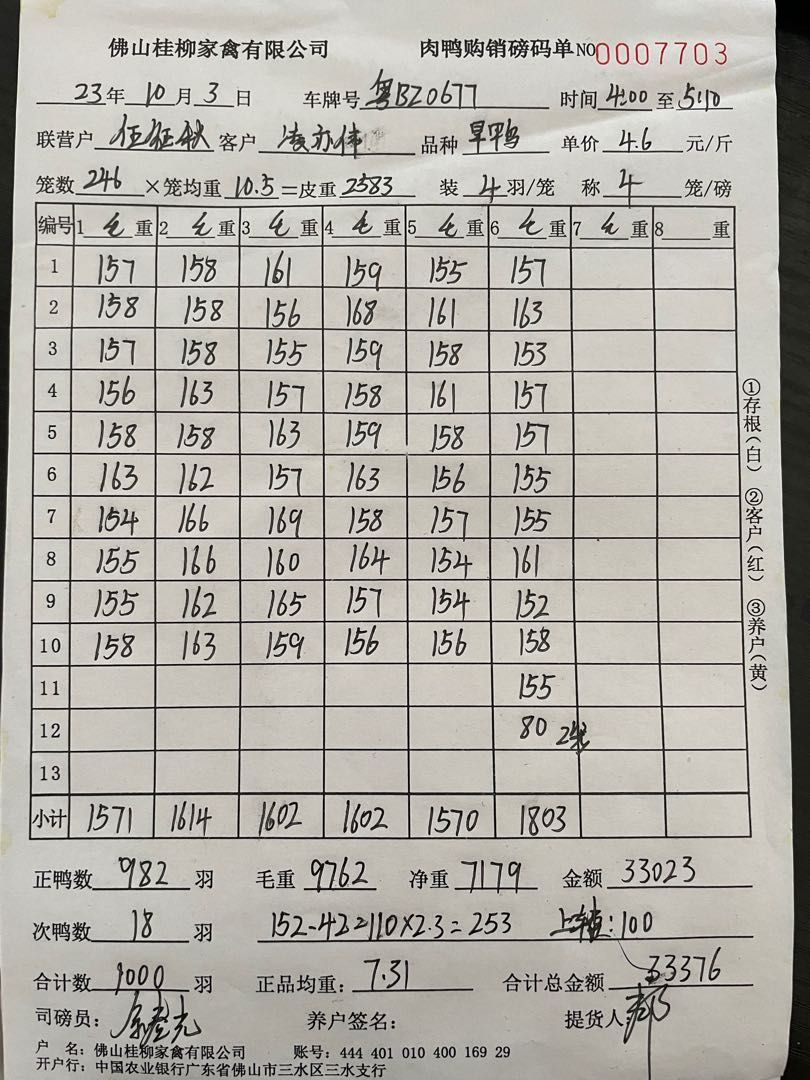 佛山桂柳家禽有限公司 肉鸭购销磅码单 NO 0007703
23年 10月 3日 车牌号 粤BZ0677 时间 4:00 至 5:10
联营户 伍钲秋 客户 凌亦伟 品种 旱鸭 单价 4.6 元/斤
笼数 246 ×笼均重 10.5 =皮重 2583 装 4 羽/笼 称 4 笼/磅
编号 1 毛 重 2 毛 重 3 毛 重 4 毛 重 5 毛 重 6 毛 重 7 毛 重 8 重
1 157 158 161 159 155 157
2 158 158 156 168 161 163
3 157 158 155 159 158 153
4 156 163 157 158 161 157
5 158 158 163 159 158 157
6 163 162 157 163 156 155
7 154 166 169 158 157 155
8 155 166 160 164 154 161
9 155 162 165 157 154 152
10 158 163 159 156 156 158
11 155
12 80 2笼
13
小计 1571 1614 1602 1602 1570 1803
正鸭数 982 羽 毛重 9762 净重 7179 金额 33023
次鸭数 18 羽 152-42=110×2.3=253 上车:100
合计数 1000 羽 正品均重: 7.31 合计总金额 33376
司磅员: 养户签名: 提货人:
户 名: 佛山桂柳家禽有限公司 账号: 444 401 010 400 169 29
开户行: 中国农业银行广东省佛山市三水区三水支行
①存根(白) ②客户(红) ③养户(黄)